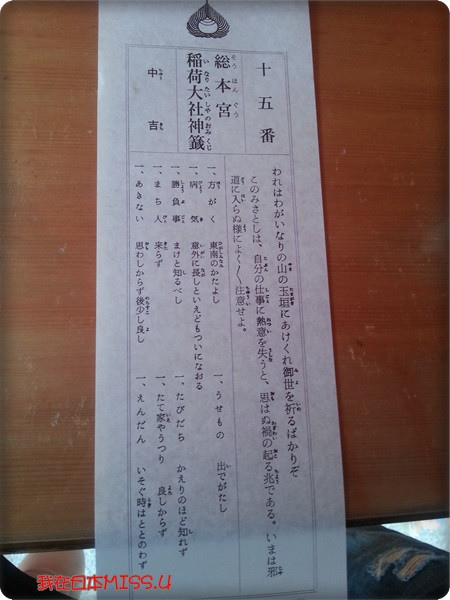 十五番
総本宮
稲荷大社神籤
中吉
われはわがいなりの山の玉垣にあけくれ御世を祈るばかりぞ
このみさとしは、自分の仕事に熱意を失うと、思はぬ禍の起る兆である。いまは邪
道に入らぬ様によく〱注意せよ。
一、方がく 東南のかたよし
一、病気 意外に長しといえどもついになおる
一、勝負事 まけと知るべし
一、まち人 来らず
一、あきない 思わしからず後少し良し
一、うせもの 出でがたし
一、たびだち かえりのほど知れず
一、たて家やうつり 良しからず
一、えんだん いそぐ時はととのわず
我在日本MISS.U